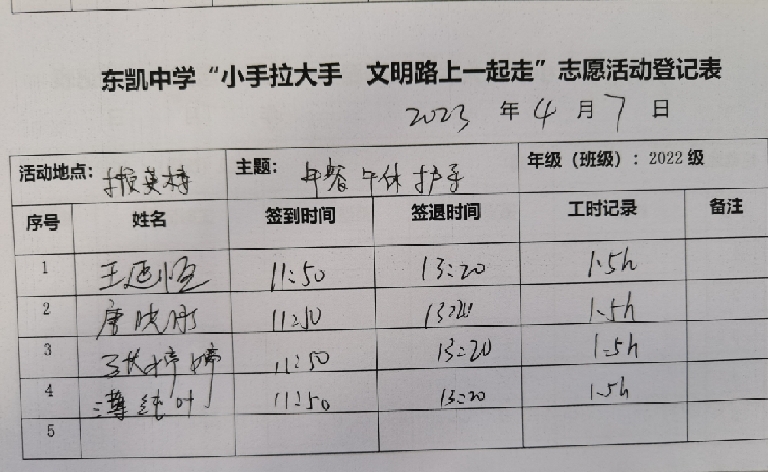 东凯中学“小手拉大手 文明路上一起走”志愿活动登记表
2023 年 4 月 7 日
活动地点： 主题： 午休 年级（班级）：2022 级
序号 姓名 签到时间 签退时间 工时记录 备注
1 11:50 13:20 1.5h
2 唐 13:20 1.5h
3 婷婷 11:50 13:20 1.5h
4 11:50 13:20 1.5h
5